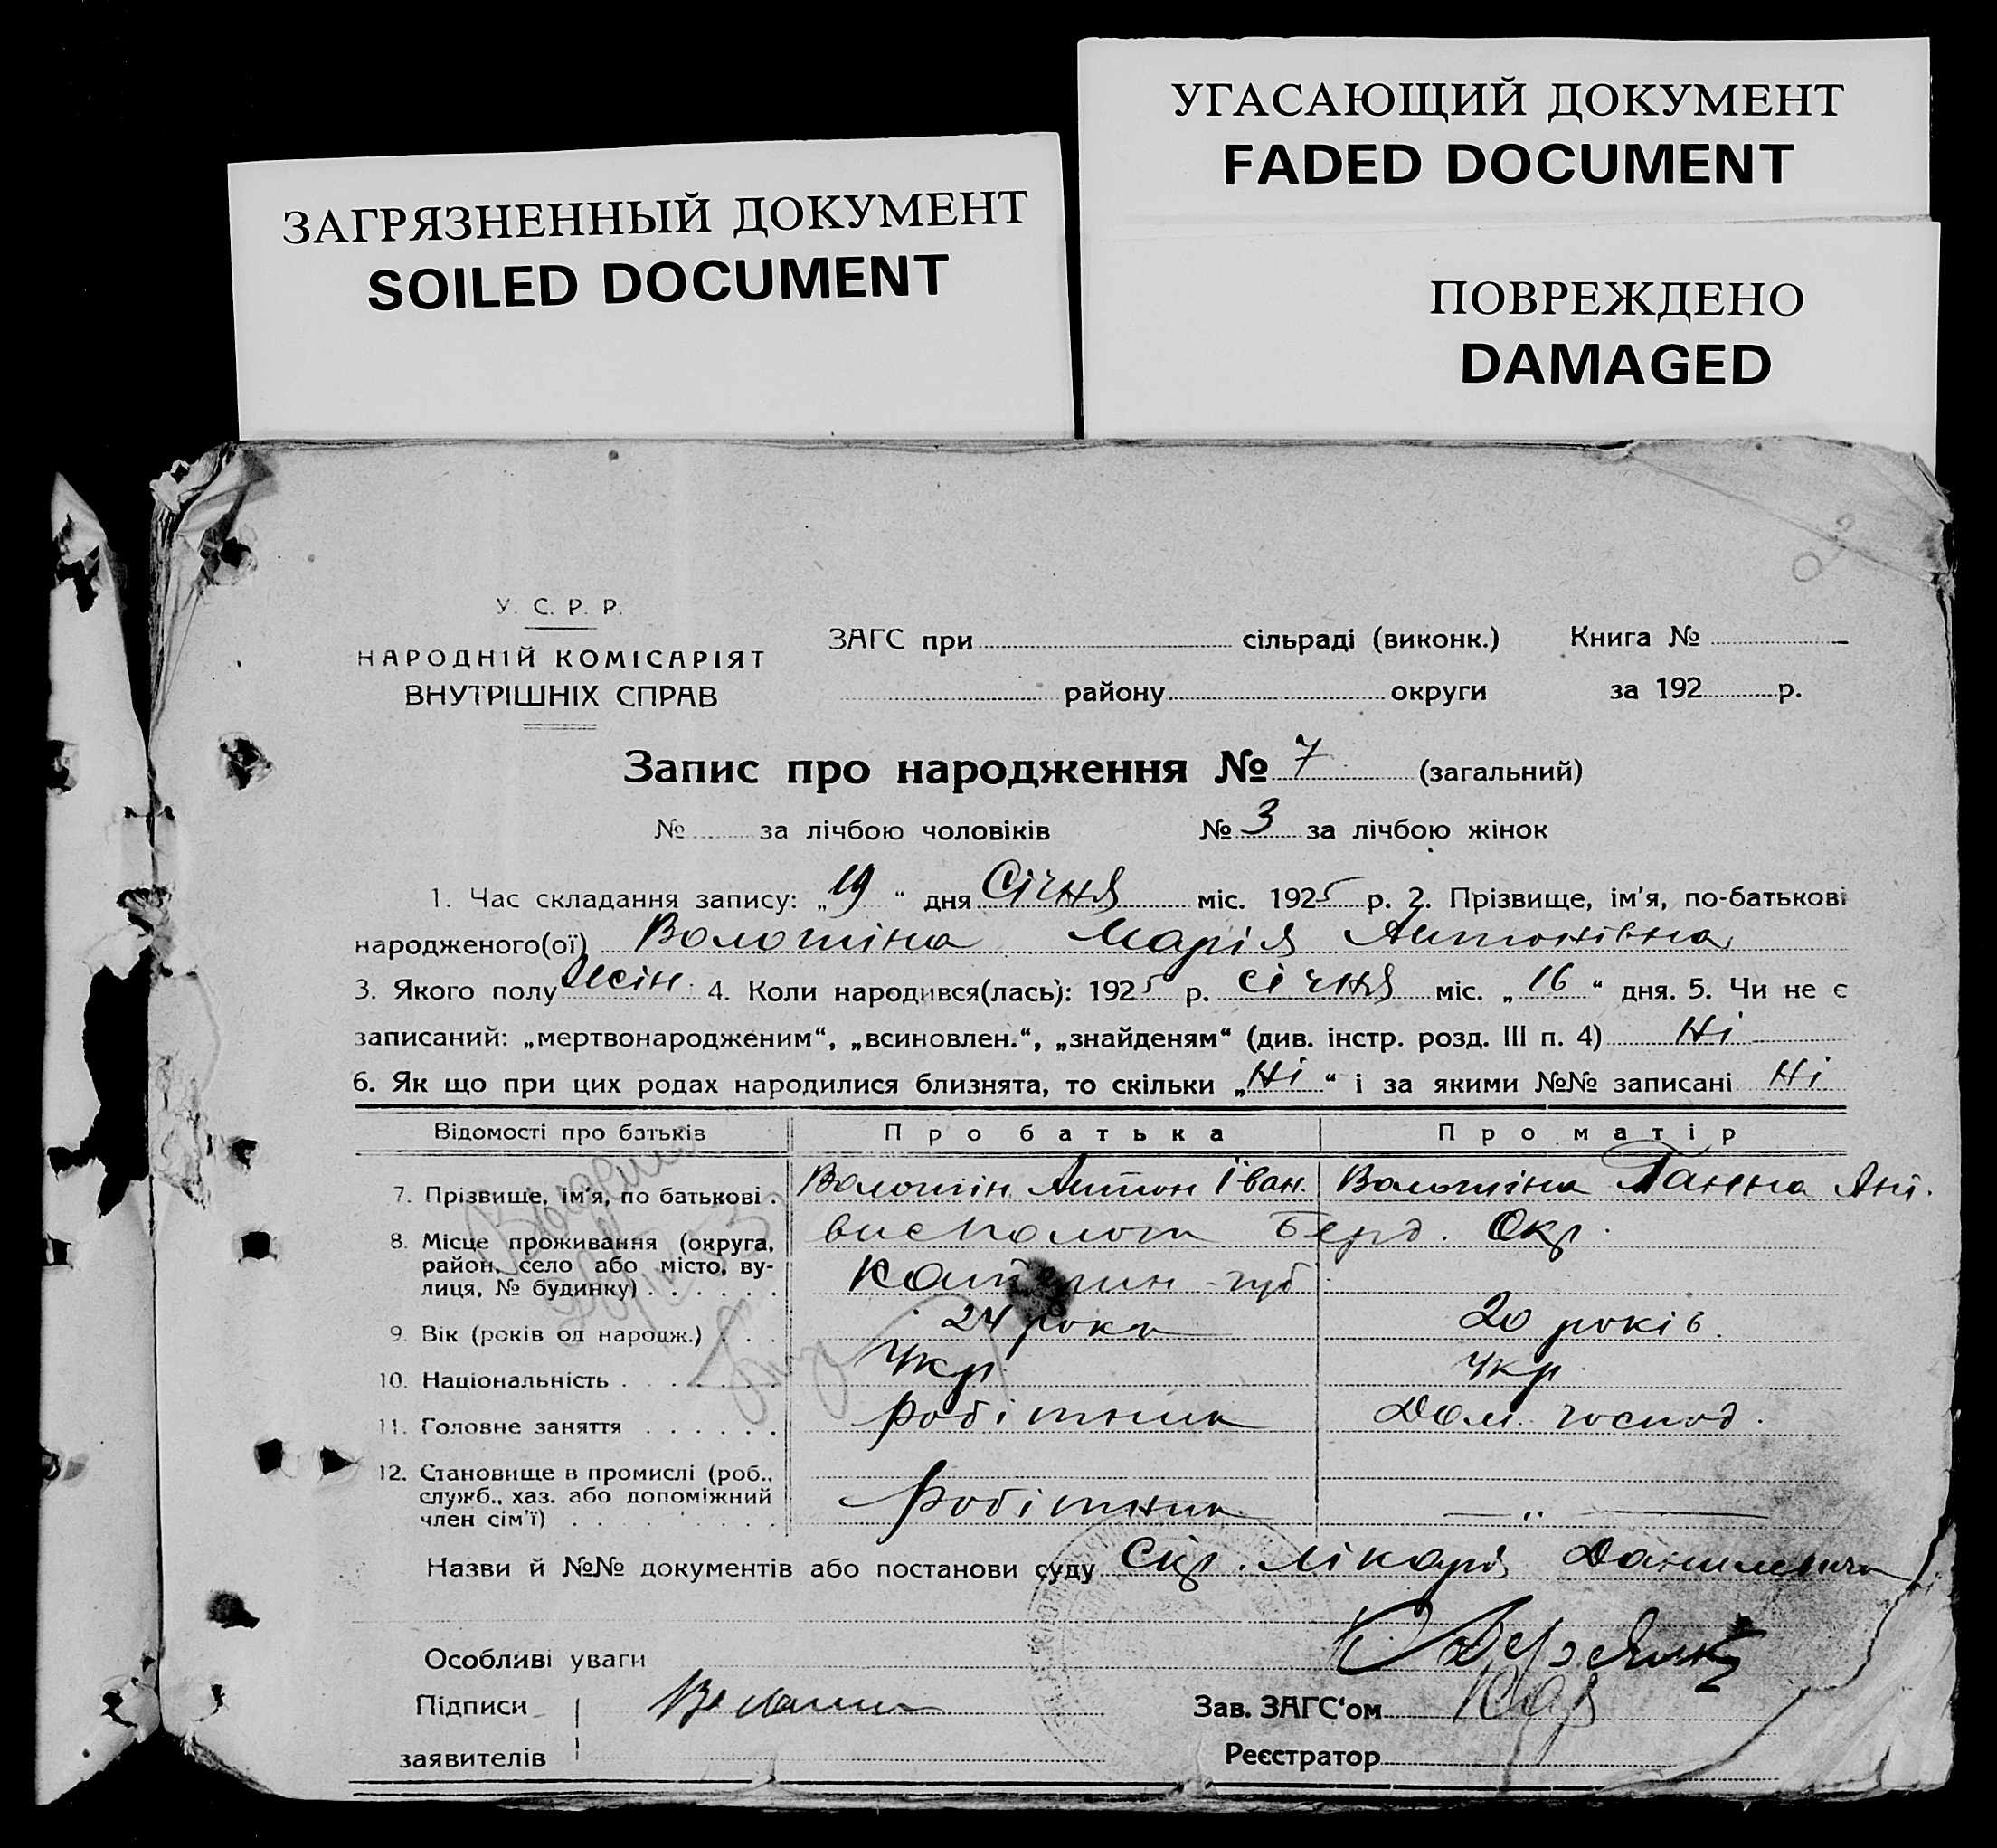 УГАСАЮЩИЙ ДОКУМЕНТ
FADED DOCUMENT
ЗАГРЯЗНЕННЫЙ ДОКУМЕНТ
SOILED DOCUMENT
ПОВРЕЖДЕНО
DAMAGED
У. С. Р. Р.
НАРОДНІЙ КОМІСАРІЯТ
ВНУТРІШНІХ СПРАВ
ЗАГС при сільраді (виконк.) Книга №
району округи за 192 р.
Запис про народження № 7 (загальний)
№ за лічбою чоловіків № 3 за лічбою жінок
1. Час складання запису: „19“ дня Січня міс. 1925 р. 2. Прізвище, ім'я, по-батькові
народженого(ої) Волошіна Марія Антонівна
3. Якого полу жін. 4. Коли народився(лась): 1925 р. січня міс. „16“ дня. 5. Чи не є
записаний: „мертвонародженим“, „всиновлен.“, „знайденям“ (див. інстр. розд. III п. 4) Ні
6. Як що при цих родах народилися близнята, то скільки „Ні“ і за якими №№ записані Ні
Відомості про батьків Про батька Про матір
7. Прізвище, ім'я, по батькові . Волошін Антон Іван. Волошіна Ганна Ант.
8. Місце проживання (округа, Берд. Окр.
район, село або місто, ву-
лиця, № будинку) . . . . . . Катерин-губ
9. Вік (років од народж.) . . . 24 роки 20 років.
10. Національність . . . . . . . Укр. Укр.
11. Головне заняття . . . . . . робітник Дом. господ.
12. Становище в промислі (роб.,
служб., хаз. або допоміжний робітник — „ —
член сім'ї) . . . . . . . . .
Назви й №№ документів або постанови суду лікаря Данилевича
Особливі уваги
Підписи Зав. ЗАГС‘ом
заявителів Реєстратор